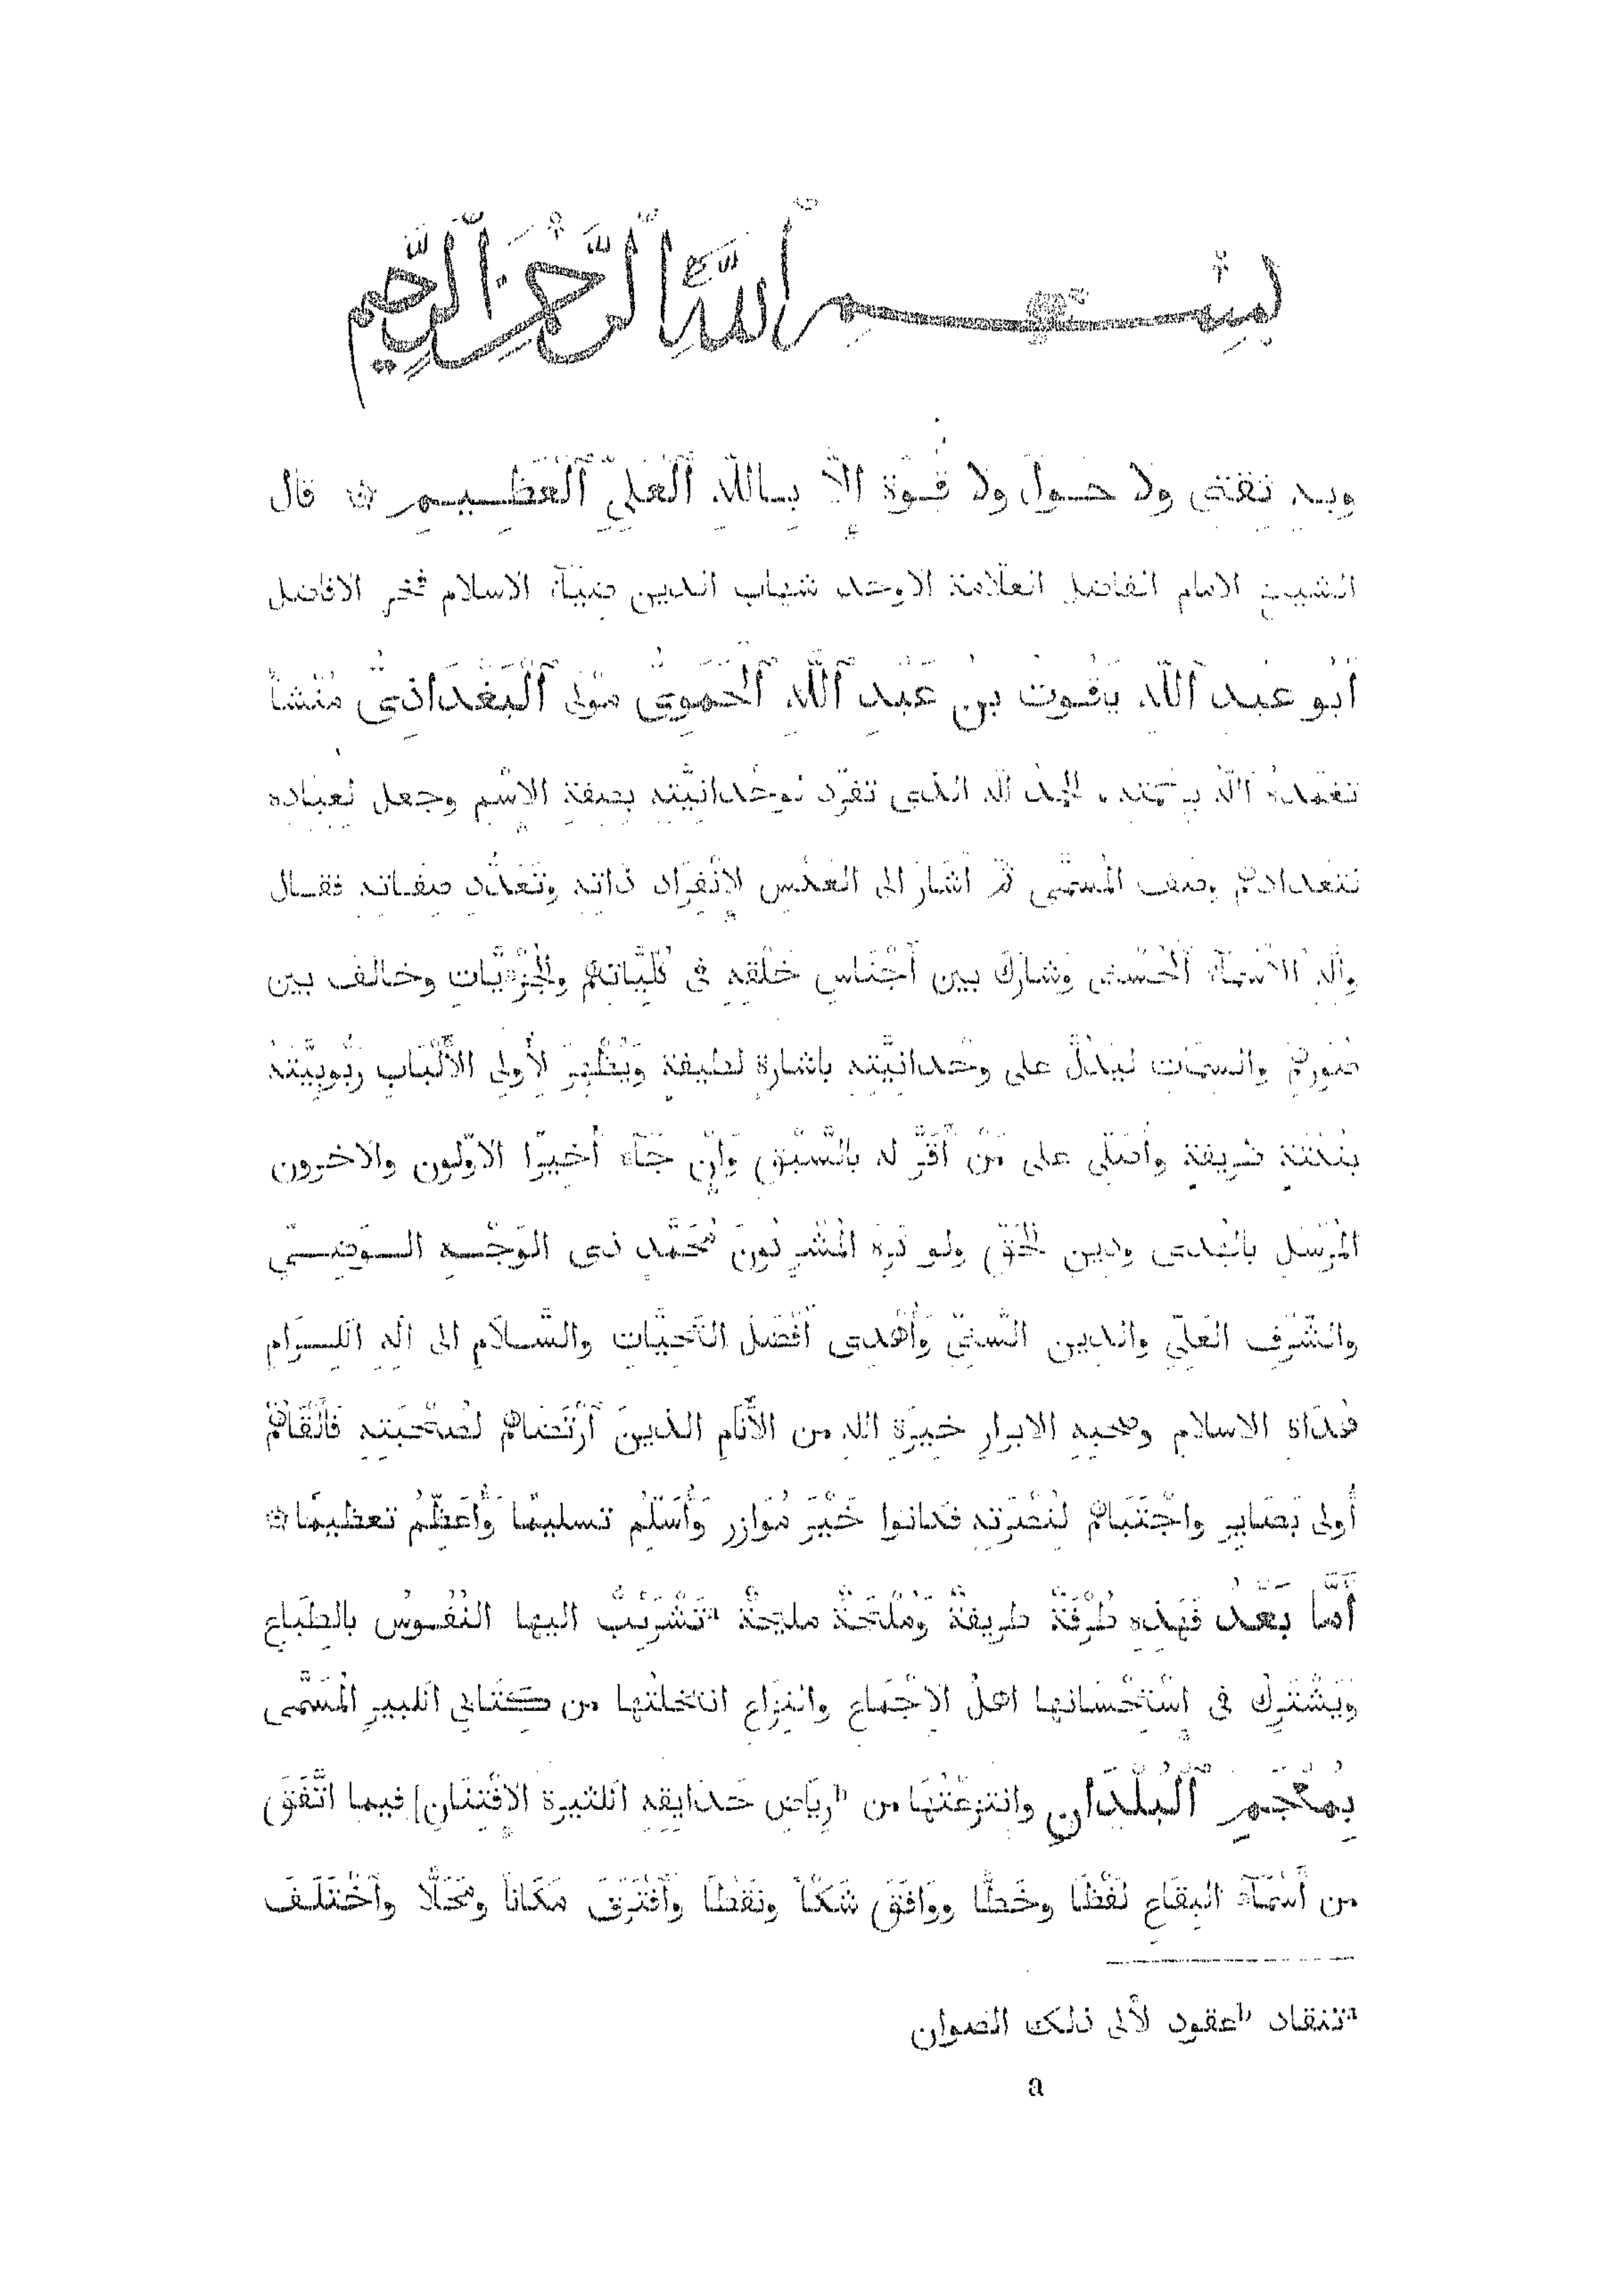 بِسْمِ ٱللَّهِ ٱلرَّحْمَنِ ٱلرَّحِيمِ
وبِهِ ثِقَتى ولا حَـوْلَ ولا قُـوَّةَ إِلَّا بِـٱللَّهِ ٱلْعَلِىِّ ٱلْعَظِـيـمِ ۞ قال
الشيخ الامام الفاضل العلّامة الاوحد شهاب الدين ضيآء الاسلام فخر الافاضل
أَبُو عبد ٱللَّه يَاقُوت بن عَبْدِ ٱللَّهِ ٱلْحَمَوِىُّ مَوْلى ٱلْبَغْدَادِىُّ مَنْشأً
تغمّدهُ اللّهُ برحمته، الحمد للّه الذى تفرّد بوَحْدانيَّتِه بصفة الاِسْم وجعل لِعبَادِه
بتَعْدادهم وصف المُسمَّى ثم أشار الى المعنى لِاِنْفِرَاد ذاتِه وتَعَدُّدِ صفاتِه فقـال
ولِلَّهِ الاسْمآءُ ٱلْحُسْنَى وشَارَكَ بين أَجْنَاسِ خَلْقِهِ فى كُلِّيَّاتهم والْجُزْءِيَّاتِ وخالَفَ بين
صُوَرِهم والسِمَات ليَدُلَّ على وَحْدانيَّتِه باشارةٍ لطيفةٍ وَيُظْهِرَ لِأُولى الأَلْبَابِ رُبُوبِيَّتَهُ
بنُكْتَةٍ شريفةٍ وأُصَلّى على مَنْ أَقَرَّ له بالسَّبْقِ وَاِنْ جَآءَ أخيرًا الاوّلون والآخرون
المُرْسَلِ بالهُدى ودين الحَقِّ ولو كَرِهَ المُشْرِكُونَ مُحَمَّدٍ ذى الوَجْـهِ الـوَضِـىِّ
والشَّرَفِ العَلِىِّ والدين السَّنِىِّ وَأُهْدِى أَفْضَلَ التَّحِيَّاتِ والسَّلَامِ الى آلِهِ الكِـرَامِ
هُدَاةِ الاسلام وصَحْبِهِ الابرارِ خِيَرَةِ اللهِ من الأَنَامِ الذينَ ٱرْتَضَاهُم لصُحْبَتِهِ فَأَلْفَاهُم
أُولى بَصَايِرِ وٱجْتَبَاهُم لنُصْرَتِهِ فكانوا خَيْرَ مُوَازِرِ وَأُسَلِّمُ تسليمًا وَأُعَظِّمُ تعظيمًا ۞
أَمَّا بَعْدُ فَهَذِهِ طُرْفَةٌ طريفةٌ وَمُلْحَةٌ مليحةٌ ªتَشْرَيِبُّ اليها النُفُوسُ بالطِبَاعِ
وَيَشْتَرِكُ فى اِسْتِحْسَانِها اهلُ الاِجْمَاعِ والنِزَاعِ انتخلتُها من كِتَابِى الكبير المُسَمَّى
بِمُعْجَمِ ٱلْبُلْدَانِ وانتزعْتُهَا من ᵇرِيَاضِ حَدَايِقِهِ الكثيرة الاِفْتِنَانِ فيما اتَّفَقَ
من أَسْمَآءِ البِقَاعِ لَفْظًا وخَطًّا ووَافَقَ شَكْلًا ونَقْطًا وٱفْتَرَقَ مَكَانًا ومَحَلًّا وٱخْتَلَفَ
ªتنقاد ᵇعقود لألى ذلك الصوان
a